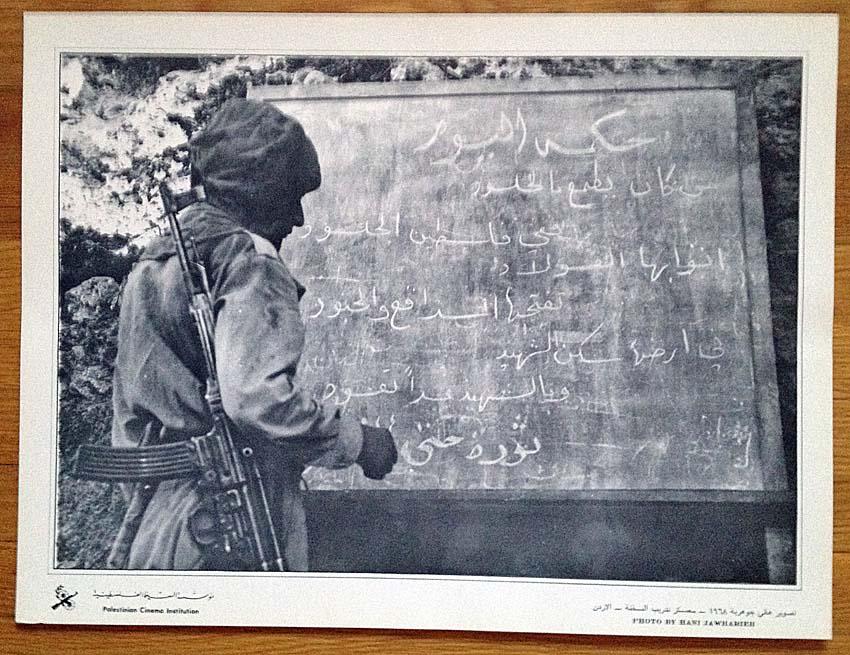 حكمة اليوم
من كان يطمع بالخلود
ففي فلسطين الخلود
ابوابها الفولاذ
تفتحها المدافع والحبور
في ارضها سكن الشهيد
وبالشهيد غداً تعود
ثورة حتى
مؤسسة السينما الفلسطينية
Palestinian Cinema Institution
تصوير هاني جوهرية ١٩٦٨ – معسكر تدريب السلط – الاردن
PHOTO BY HANI JAWHARIEH